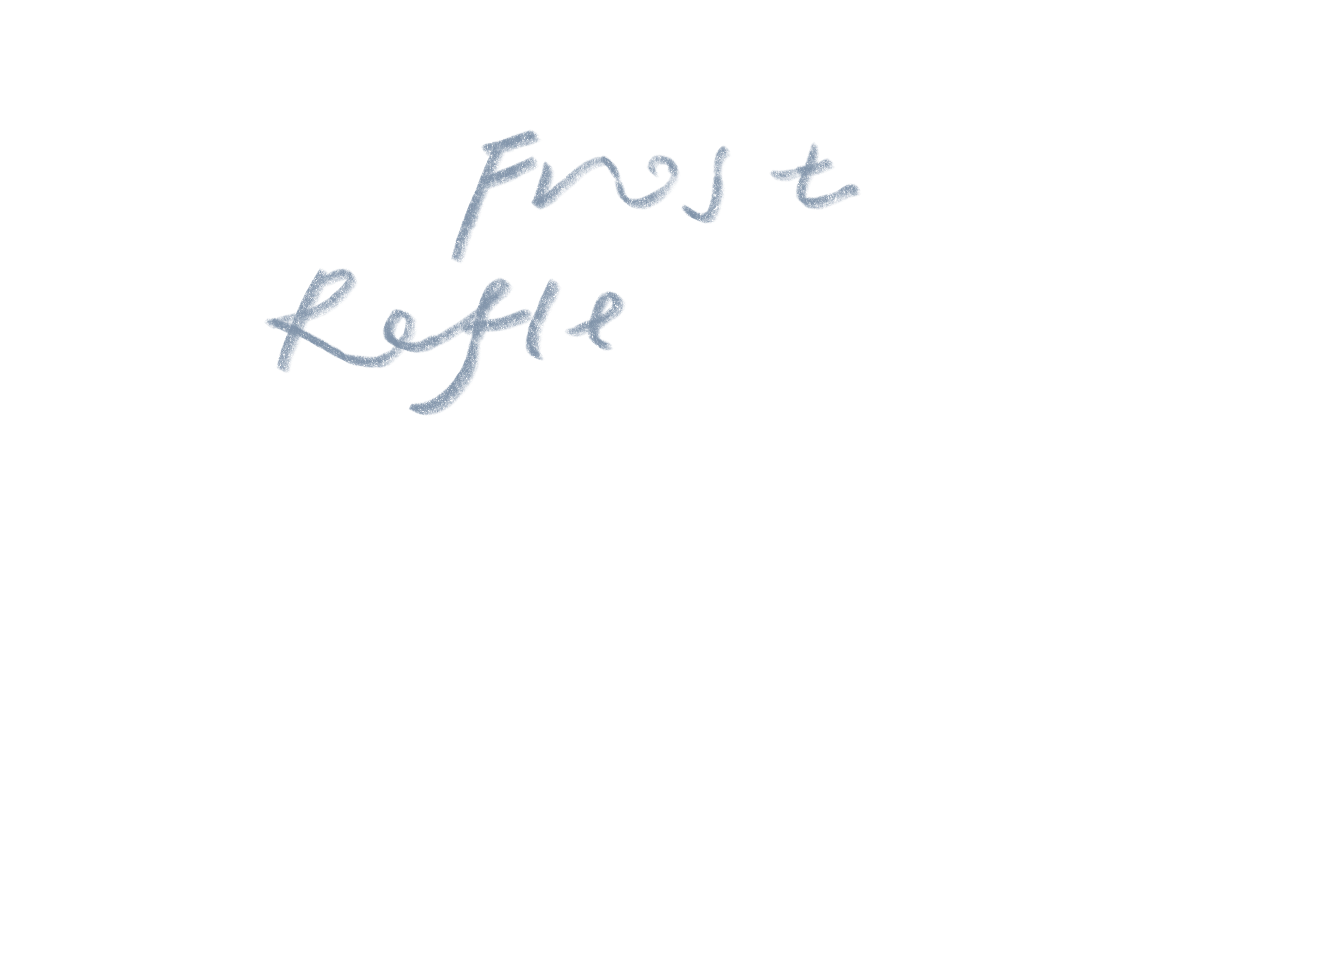 Frost
Refle